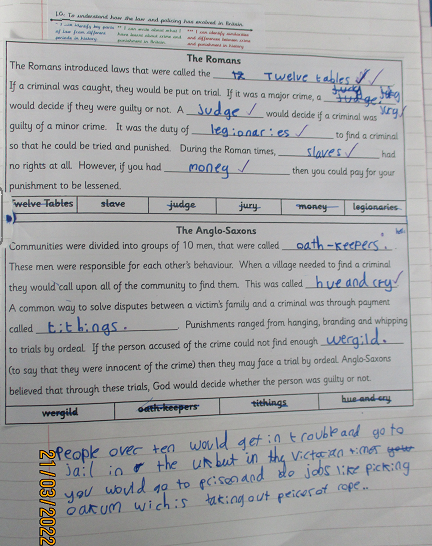 LO: To understand how the law and policing has evolved in Britain.
The Romans
The Romans introduced laws that were called the Twelve tables
If a criminal was caught, they would be put on trial. If it was a major crime, a jury
would decide if they were guilty or not. A Judge would decide if a criminal was
guilty of a minor crime. It was the duty of legionaries to find a criminal
so that he could be tried and punished. During the Roman times, slaves had
no rights at all. However, if you had money then you could pay for your
punishment to be lessened.
Twelve Tables slave judge jury money legionaries
The Anglo-Saxons
Communities were divided into groups of 10 men, that were called oath-keepers.
These men were responsible for each other's behaviour. When a village needed to find a criminal
they would call upon all of the community to find them. This was called hue and cry
A common way to solve disputes between a victim's family and a criminal was through payment
called tithings. Punishments ranged from hanging, branding and whipping
to trials by ordeal. If the person accused of the crime could not find enough wergild.
(to say that they were innocent of the crime) then they may face a trial by ordeal. Anglo-Saxons
believed that through these trials, God would decide whether the person was guilty or not.
wergild oath-keepers tithings hue and cry
People over ten would get in trouble and go to
jail in the uk but in the Victorian times
you would go to prison and do jobs like picking
oakum wich is taking out peices of rope..
21/03/2022